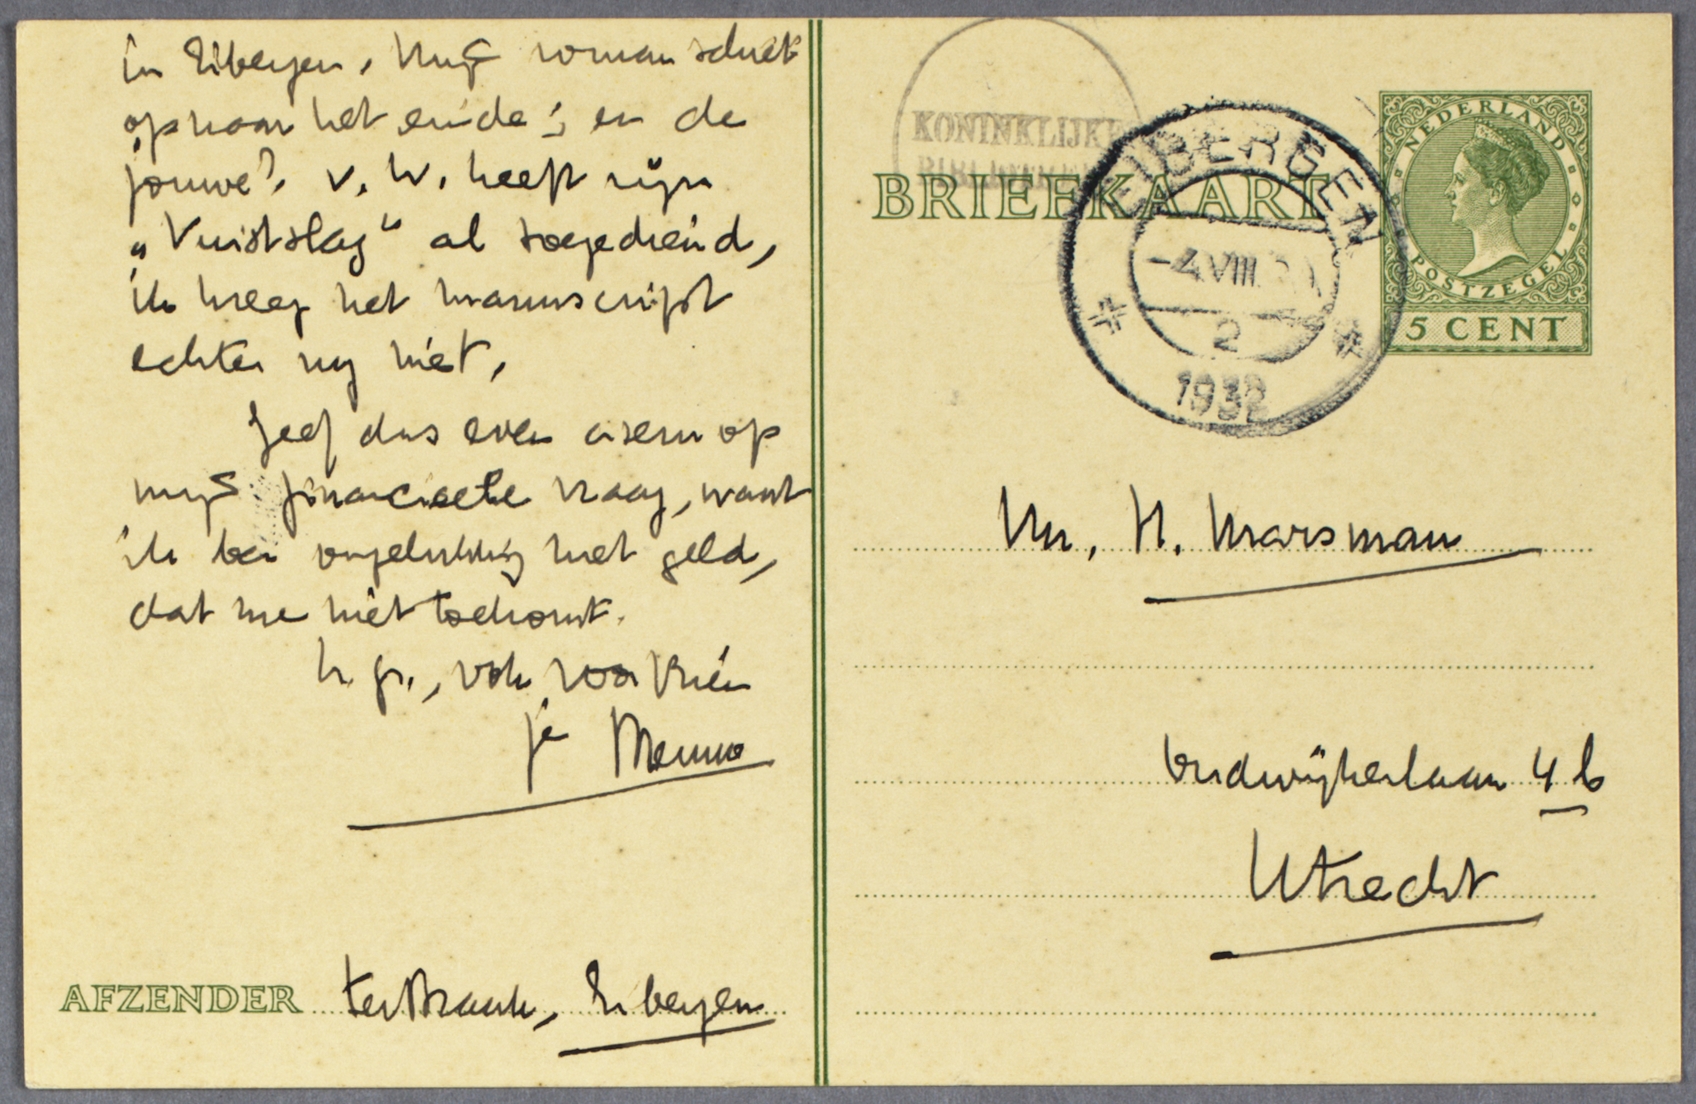 in Eibergen. Mijn roman schiet
op naar het einde; en de
jouwe? v. W. heeft zijn
„Vuistslag" al toegediend,
ik kreeg het manuscript
echter nog niet.
Geef dus even asem op
mijn financieele vraag, want
ik ben ongelukkig met geld,
dat me niet toekomt.
h. gr., ook voor Rien
je Menno
AFZENDER ter Braak, Eibergen
KONINKLIJKE
BIBLIOTHEEK
BRIEFKAART
EIBERGEN
-4.VIII.
2
1932
NEDERLAND
POSTZEGEL
5 CENT
Mr. H. Marsman
Oudwijkerlaan 4b
Utrecht